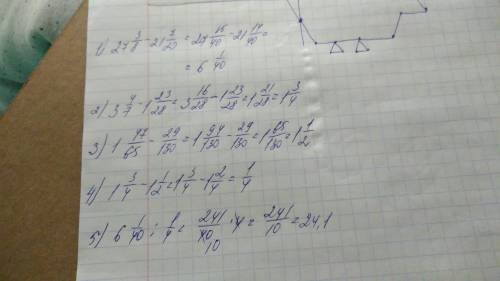 1) 27 3/8 - 21 7/20 = 27 15/40 - 21 14/40 =
= 6 1/40
2) 3 4/7 - 1 23/28 = 3 16/28 - 1 23/28 = 1 21/28 = 1 3/4
3) 1 47/65 - 29/130 = 1 94/130 - 29/130 = 1 65/130 = 1 1/2
4) 1 3/4 - 1 1/2 = 1 3/4 - 1 2/4 = 1/4
5) 6 1/40 : 1/4 = 241/40 · 4 = 241/10 = 24,1
10